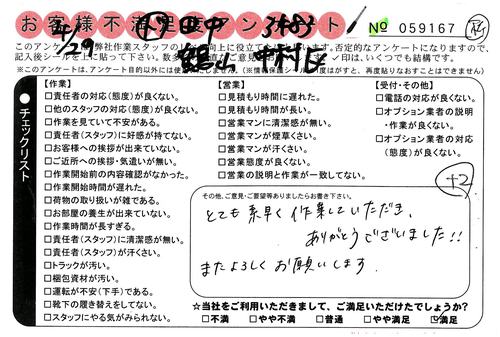 お客様不満足アンケート
No 059167
4/29
田中
このアンケートは弊社作業スタッフの向上に役立て
否定的なアンケートになりますので、
記入後シールを上に貼って下さい。
いくつでも結構です。
※このアンケートは、アンケート目的以外には使用しません。(※情報保護シールは一度はがすと、再度貼りなおすことはできません)
チェックリスト
【作業】
□責任者の対応(態度)が良くない。
□他のスタッフの対応(態度)が良くない。
□作業を見ていて不安がある。
□責任者(スタッフ)に好感が持てない。
□お客様への挨拶が出来ていない。
□ご近所への挨拶・気遣いが無い。
□作業開始前の内容確認がなかった。
□作業開始時間が遅れた。
□荷物の取り扱いが雑である。
□お部屋の養生が出来ていない。
□作業時間が長すぎる。
□責任者(スタッフ)に清潔感が無い。
□責任者(スタッフ)が汗くさい。
□トラックが汚い。
□梱包資材が汚い。
□運転が不安(下手)である。
□靴下の履き替えをしてない。
□スタッフにやる気がみられない。
【営業】
□見積もり時間に遅れた。
□見積もり時間が長い。
□営業マンに清潔感が無い。
□営業マンが煙草くさい。
□営業マンが汗くさい。
□営業態度が良くない。
□営業の説明と作業が一致してない。
【受付・その他】
□電話の対応が良くない。
□オプション業者の説明
・作業が良くない。
□オプション業者の対応
(態度)が良くない。
+2
その他、ご意見・ご要望等ありましたらお書き下さい。
とても素早く作業していただき、
ありがとうございました!!
またよろしくお願いします。
☆当社をご利用いただきまして、ご満足いただけたでしょうか?
□不満 □やや不満 □普通 □やや満足 ☑満足